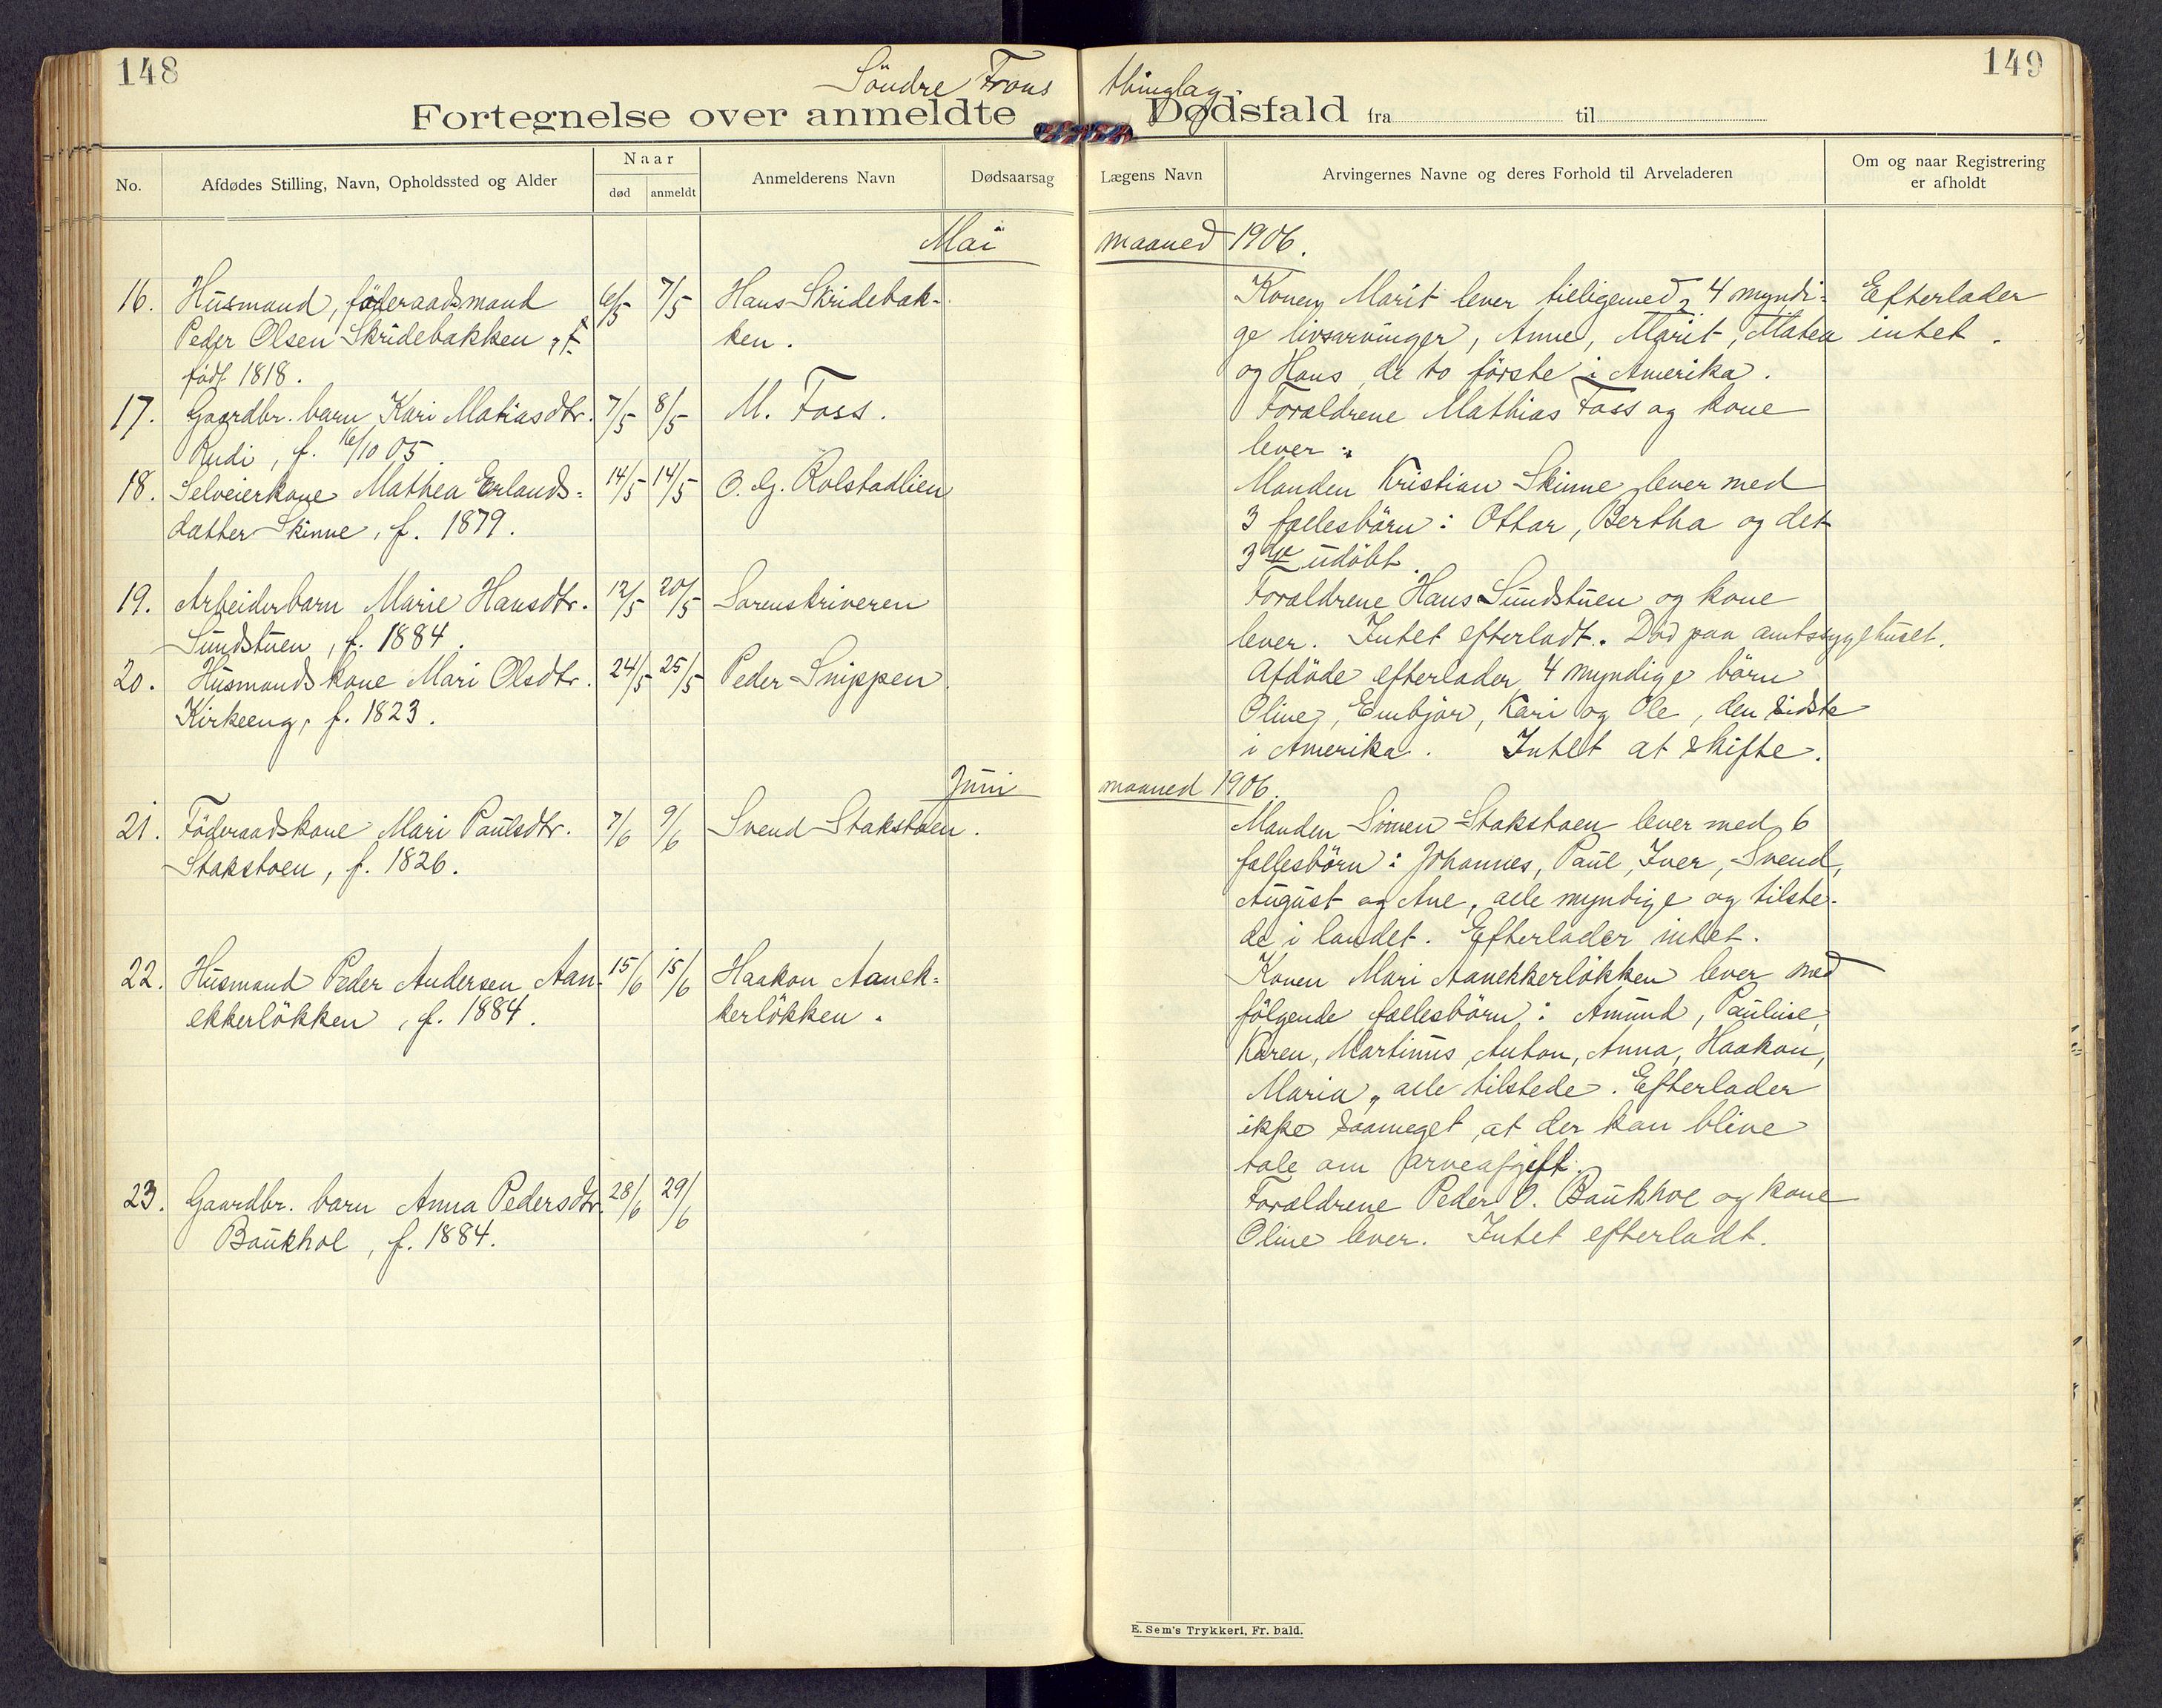 148
149
Söndre Frons thinglag.
Fortegnelse over anmeldte Dødsfald fra til
No.
Afdødes Stilling, Navn, Opholdssted og Alder
Naar
død
anmeldt
Anmelderens Navn
Dødsaarsag
Lægens Navn
Arvingernes Navne og deres Forhold til Arveladeren
Om og naar Registrering
er afholdt
Mai maaned 1906.
16. Husmand, föderaadsmand 6/5 7/5 Hans Skridebak-
Peder Olsen Skridebakken, f.
ken.
född 1818.
Konen Marit lever tilligemed 4 myndi-
ge livsarvinger, Anne, Marit, Mathea
og Hans, de to förste i Amerika.
Efterlader
intet.
17. Gaardbr. barn Kari Matiasdtr. 7/5 8/5 M. Foss.
Rudi, f. 16/10 05.
Forældrene Mathias Foss og kone
lever.
18. Selveierkone Mathea Erlands- 14/5 14/5 O. G. Rolstadlien
datter Skinne, f. 1879.
Manden Kristian Skinne lever med
3 fællesbörn: Ottar, Bertha og det
3die udöbt.
19. Arbeiderbarn Marie Hansdtr. 12/5 20/5 Sorenskriveren
Sundstuen, f. 1884.
Forældrene Hans Sundstuen og kone
lever. Intet efterladt. Död paa amtssygehuset.
20. Husmandskone Mari Olsdtr. 24/5 25/5 Peder Snippen
Kirkeeng, f. 1823.
Afdöde efterlader 4 myndige börn
Oline, Embjör, Kari og Ole, den sidste
i Amerika. Intet at skifte.
Juni maaned 1906.
21. Föderaadskone Mari Paulsdtr. 7/6 9/6 Svend Stakstoen.
Stakstoen, f. 1826.
Manden Simen Stakstoen lever med 6
fællesbörn: Johannes, Paul, Iver, Svend,
August og Ane, alle myndige og tilste-
de i landet. Efterlader intet.
22. Husmand Peder Andersen Aan- 15/6 15/6 Haakon Aanek-
ekkerlökken, f. 1884.
kerlökken.
Konen Mari Aanekkerlökken lever med
fölgende fællesbörn: Amund, Pauline,
Karen, Martinus, Anton, Anna, Haakon,
Maria, alle tilstede. Efterlader
ikke saameget, at der kan blive
tale om arveafgift.
23. Gaardbr. barn Anna Pedersdtr. 28/6 29/6
Baukhol, f. 1884.
Forældrene Peder O. Baukhol og kone
Oline lever. Intet efterladt.
E. Sem's Trykkeri, Fr. hald.